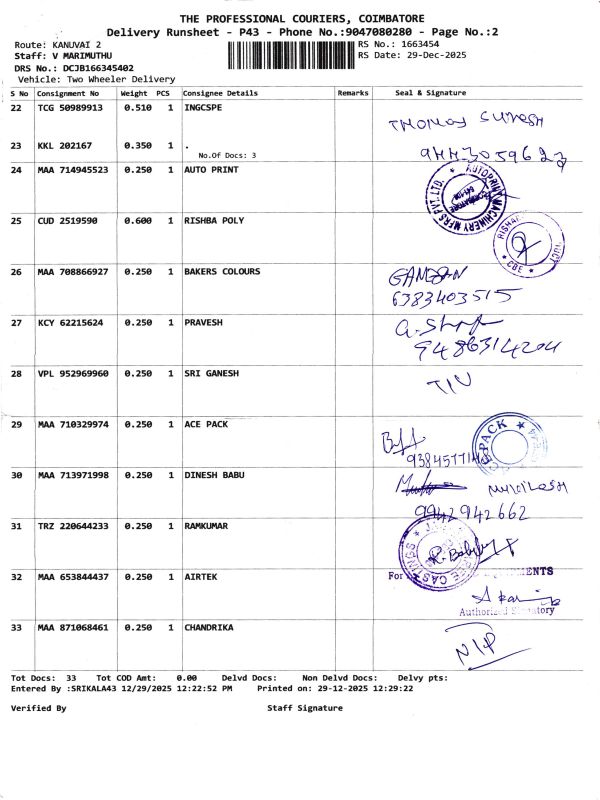 THE PROFESSIONAL COURIERS, COIMBATORE
Delivery Runsheet - P43 - Phone No.:9047080280 - Page No.:2
Route: KANUVAI 2
RS No.: 1663454
Staff: V MARIMUTHU
RS Date: 29-Dec-2025
DRS No.: DCJB166345402
Vehicle: Two Wheeler Delivery
S No Consignment No Weight PCS Consignee Details Remarks Seal & Signature
22 TCG 50989913 0.510 1 INGCSPE
THOMAS SURESH
23 KKL 202167 0.350 1 .
No.Of Docs: 3
24 MAA 714945523 0.250 1 AUTO PRINT
AUTOPRINT MACHINERY MFRS PVT. LTD.
25 CUD 2519590 0.600 1 RISHBA POLY
CBE
26 MAA 708866927 0.250 1 BAKERS COLOURS
6383403515
27 KCY 62215624 0.250 1 PRAVESH
9486314204
28 VPL 952969960 0.250 1 SRI GANESH
29 MAA 710329974 0.250 1 ACE PACK
PACK
30 MAA 713971998 0.250 1 DINESH BABU
9942942662
31 TRZ 220644233 0.250 1 RAMKUMAR
CASTINGS
32 MAA 653844437 0.250 1 AIRTEK
For
Authorized Signatory
33 MAA 871068461 0.250 1 CHANDRIKA
Tot Docs: 33 Tot COD Amt: 0.00 Delvd Docs: Non Delvd Docs: Delvy pts:
Entered By :SRIKALA43 12/29/2025 12:22:52 PM Printed on: 29-12-2025 12:29:22
Verified By Staff Signature